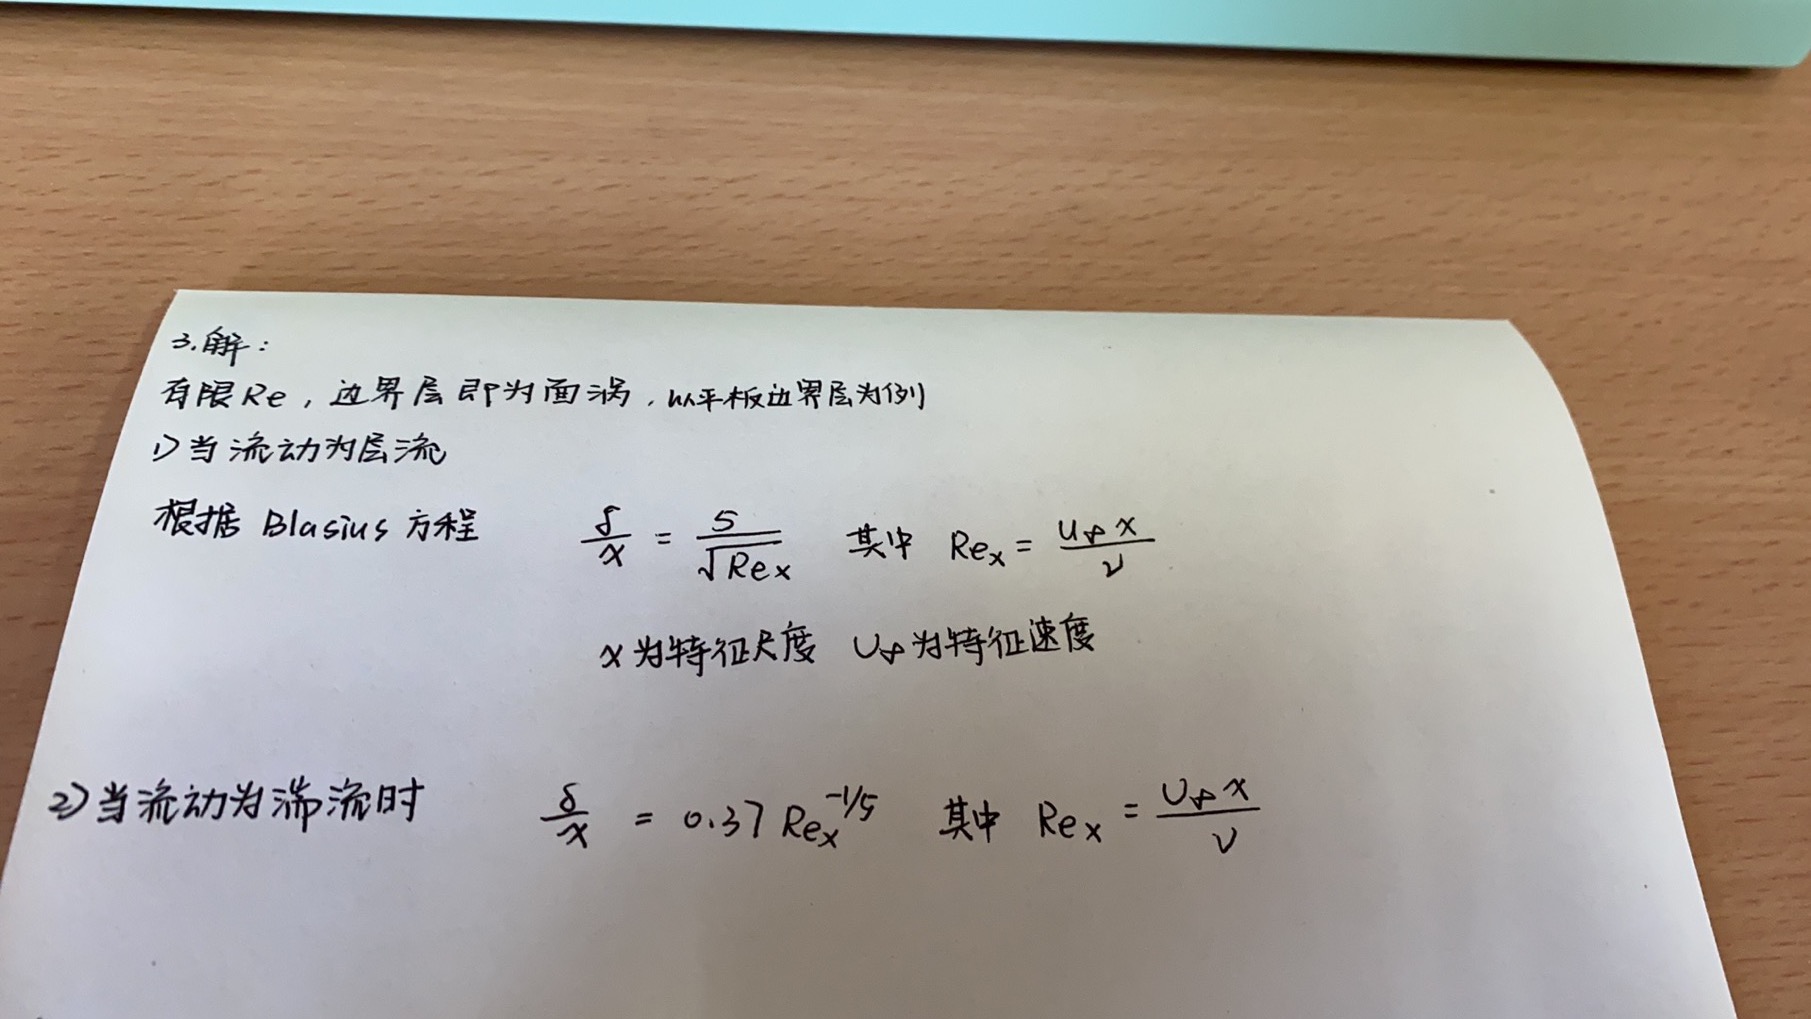 3.解:
有限Re，边界层即为面涡，以平板边界层为例
1)当流动为层流
根据 Blasius 方程 δ/x = 5/√Rex 其中 Rex = U∞x/ν
x为特征尺度 U∞为特征速度
2)当流动为湍流时 δ/x = 0.37 Rex^-1/5 其中 Rex = U∞x/ν